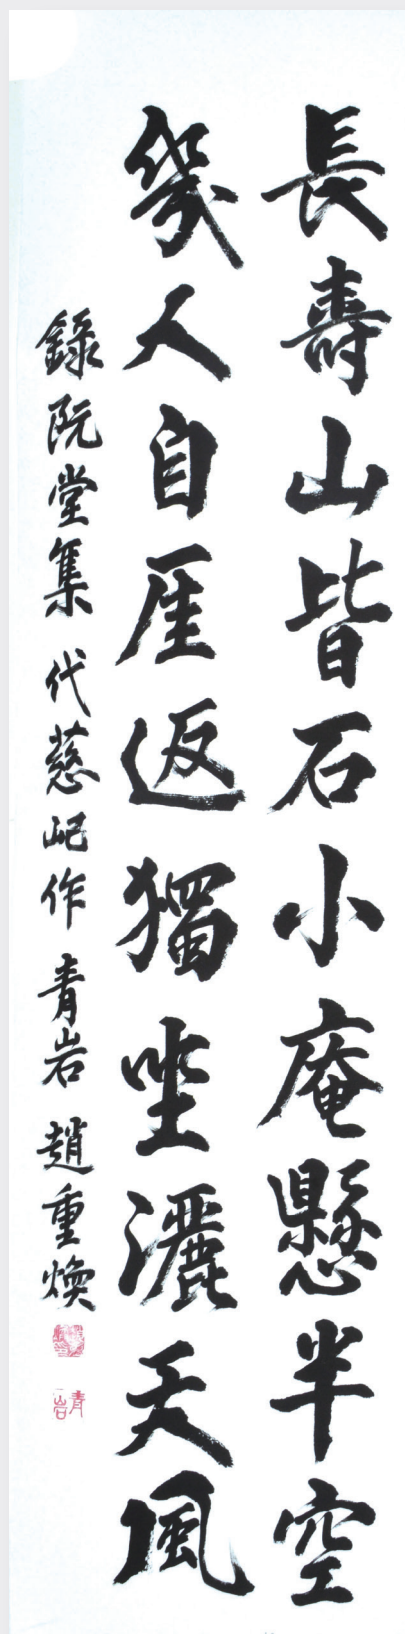 長壽山皆石小庵懸半空
幾人自厓返獨坐灑天風
錄阮堂集 代慈屺作 青岩 趙重煥
青岩